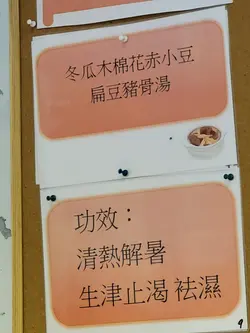 冬瓜木棉花赤小豆
扁豆豬骨湯
功效：
清熱解暑
生津止渴 袪濕